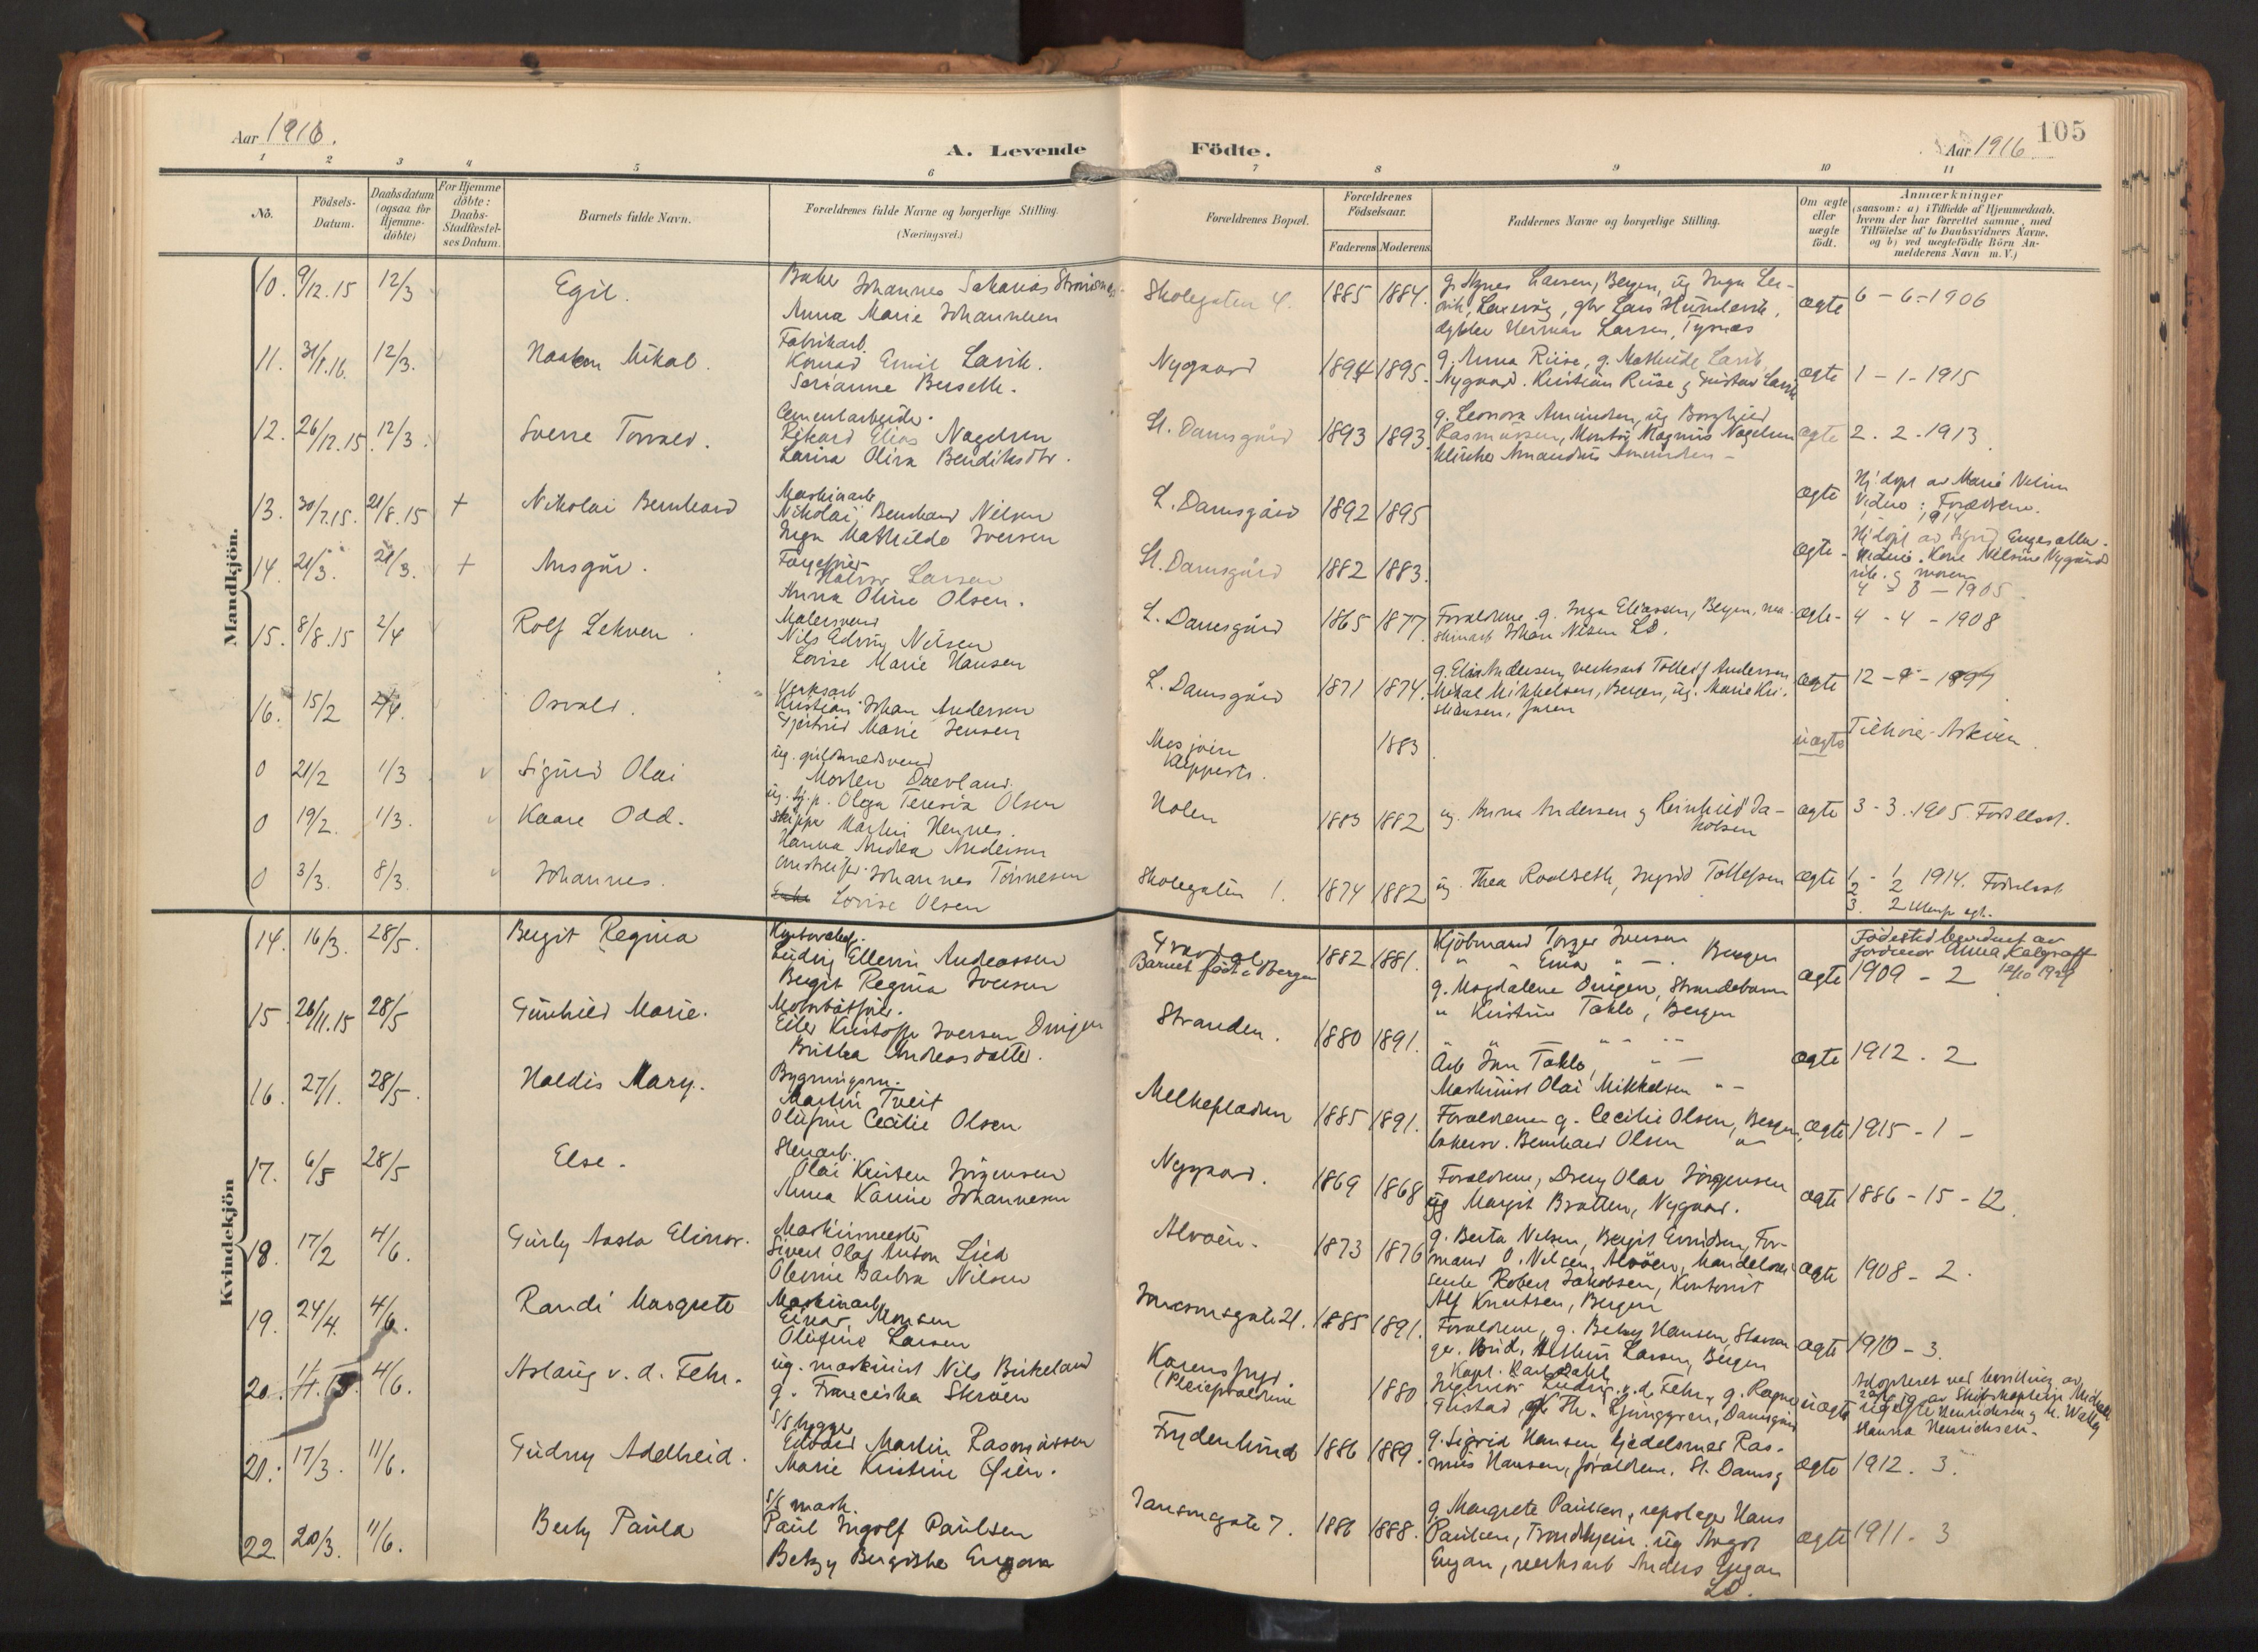 Aar 1916.
A. Levende Födte.
105
Aar 1916
1 2 3 4 5 6 7 8 9 10 11
No.
Födsels-Datum.
Daabsdatum (ogsaa for Hjemme-döbte)
For Hjemme döbte: Daabs-Stadfæstelses Datum.
Barnets fulde Navn.
Forældrenes fulde Navne og borgerlige Stilling. (Næringsvei.)
Forældrenes Bopæl.
Forældrenes Födselsaar.
Faderens Moderens
Faddernes Navne og borgerlige Stilling.
Om ægte eller uægte födt.
Anmærkninger
(saasom: a) i Tilfælde af Hjemmedaab, hvem der har forrettet samme, med Tilföielse af to Daabsvidners Navne, og b) ved uægtefödte Börn Anmelderens Navn m. V.)
Mandkjön.
10. 9/12.15 12/3 Egil.
Johannes Sakarias
Anna Marie Johannesen
Skolegaten 4. 1885 1884.
g. Agnes Larsen, Bergen, ug Inga
Herman Larsen, Tysnes
ægte 6 - 6 - 1906
11. 31/1.16. 12/3. Haakon Mikal.
Fabrikarb.
Konrad Emil Larik.
Serianne Berseth.
Nygaard 1894 1895.
g. Anna Riise, g. Mathilde Larik
Nygaard. Kristian Riise g Gustav Larik
ægte 1 - 1 - 1915
12. 26/12.15. 12/3. Sverre Torvald.
Cementarbeide.
Rikard Elias Nagelsen
Larina Olina Bendiksdtr.
St. Damsgård 1893 1893.
g. Leonora Amundsen, ug Borghild
Rasmussen, Magnus Nagelsen
Amandus Amundsen
ægte 2. 2. 1913
13. 30/7.15. 21/8.15 + Nikolai Bernhard
Maskinarb
Nikolai Bernhard Nilsen
Inga Mathilde Iversen
L. Damsgård 1892 1895
ægte
Hj.døpt av Marie Nilsen
Vidne: Forældrene.
1914
14. 21/3. 21/3. + Ansgår.
Larsen
Anna Oline Olsen.
St. Damsgård 1882 1883.
ægte
Hj.døpt av Sigrid
Kone Nilsine Nygård
g moren
4 - 3 - 1905
15. 8/8.15 2/4 Rolf Lekven.
Malersvend
Nils Edvin Nilsen
Lovise Marie Hansen
L. Damsgård 1865 1877
Forældrene. g. Inga Eliassen, Bergen, maskinarb Johan Nilsen LD.
ægte 4 - 4 - 1908
16. 15/2 2/4. Osvald.
Verksarb
Kristian Johan Andersen
Gjertrud Marie Jensen
L. Damsgård 1871 1874.
g. Elin Andersen, verksarb Tollef Andersen
Mikal Mikkelsen, Bergen, ug. Marie Kristiansen,
ægte 12 - 9 - 1897
0 21/2 1/3 Sigurd Olai
ug. guldsmedsvend
Morten Dævland.
ug. tj.p. Olga Teresia Olsen
1883
uægte
Tilhører Askøen.
0 19/2. 1/3. Kaare Odd.
Skipper Martin Hennes.
Hanna Andrea Andersen
Holen 1883 1882
ug. Anna Andersen g Reinhard Jakobsen
ægte 3 - 3. 1905.
0 3/3. 8/3. Johannes.
Johannes Tönnesen
Lovise Olsen
Skolegaten 1. 1874 1882
ug. Thea Roaldseth, Ingrid Tollefsen
ægte 1 - 1/2 1914.
Kvindekjön
14. 16/3. 28/5. Bergit Regina
Ludvig Ellerin Andreassen
Bergit Regina Iversen
Gravdal
Barnet födt i Bergen
1882 1881.
Kjöbmand Torger Iversen
" " Ema " —. Bergen
ægte
Födested berigtiget av jordmor Anna Kalgraff 12/10 1929
1909 - 2
15. 26/11.15 28/5 Gunhild Marie.
Eiler Kristoffer Iversen Dringen
Britha Andreasdatter.
Stranden. 1880 1891.
g. Magdalene Dringen, Strandebarm
" Kristine Takle, Bergen
Arb Jan Takle, " —
Maskinist Olai Mikkelsen " —
ægte 1912. 2
16. 27/1. 28/5. Haldis Mary.
Bygningsm.
Martin Tveit
Olufine Cecilie Olsen
Melkepladsen 1885 1891.
Forældrene g. Cecilie Olsen, Bergen,
bakersv. Bernhard Olsen "
ægte 1915 - 1 -
17. 6/5 28/5 Else.
Stenarb.
Olai Kristen Jörgensen
Anna Karine Johannesen
Nygaard. 1869 1868
Forældrene, Dreng Olav Jörgensen
ug Margit Bratten, Nygaard.
ægte 1886 - 15 - 12.
18. 17/2 4/6. Gurly Aasta Elinor.
Maskinmester
Sivert Olaf Anton Lied
Olerine Barbra Nilsen
Alvöen. 1873 1876
g. Berta Nilsen, Bergit Evnidsen, Formand O. Nilsen, Alvöen,
Robert Jakobsen, Kontorist
Alf Knutsen, Bergen
ægte 1908 - 2.
19. 24/4. 4/6. Randi Margrete
Maskinarb.
Einar Monsen
Olufine Larsen
Jansonsgate 21. 1885 1891.
Forældrene, g. Betzy Hansen, Stavanger.
Larsen, Bergen
ægte 1910 - 3.
20. 4/6. Aslaug v. d. Fehr.
ug. maskinist Nils Birkeland
g. Franciska Skröen
(Pleieforældrene
1880
Kapt. Karl Dahl
Ingeniör Ludvig v. d. Fehr, g. Ragna
Gustad, Th. Ljunggren, Damsgård
uægte
Adopteret ved bevilling av
av Skibskaptein
Henrichsen g h.
Hanna Henrichsen.
21. 17/3. 11/6. Gudny Adelheid.
S/S hygger
Edvard Martin Rasmussen
Marie Kristine Öien.
Frydenlund 1886 1889.
g. Sigrid Hansen, kjedelsmed Rasmus Hansen, forældrene. St. Damsg
ægte 1912. 3.
22. 20/3. 11/6. Berly Paula
S/S mask.
Paul Ingolf Paulsen
Betzy Bergithe Engan
Jansonsgate 7. 1886 1888.
g. Margrete Paulsen, repslager Hans
Paulsen, Trondhjem. ug Aagot
Engan, verksarb Anders Engan
LD.
ægte 1911. 3